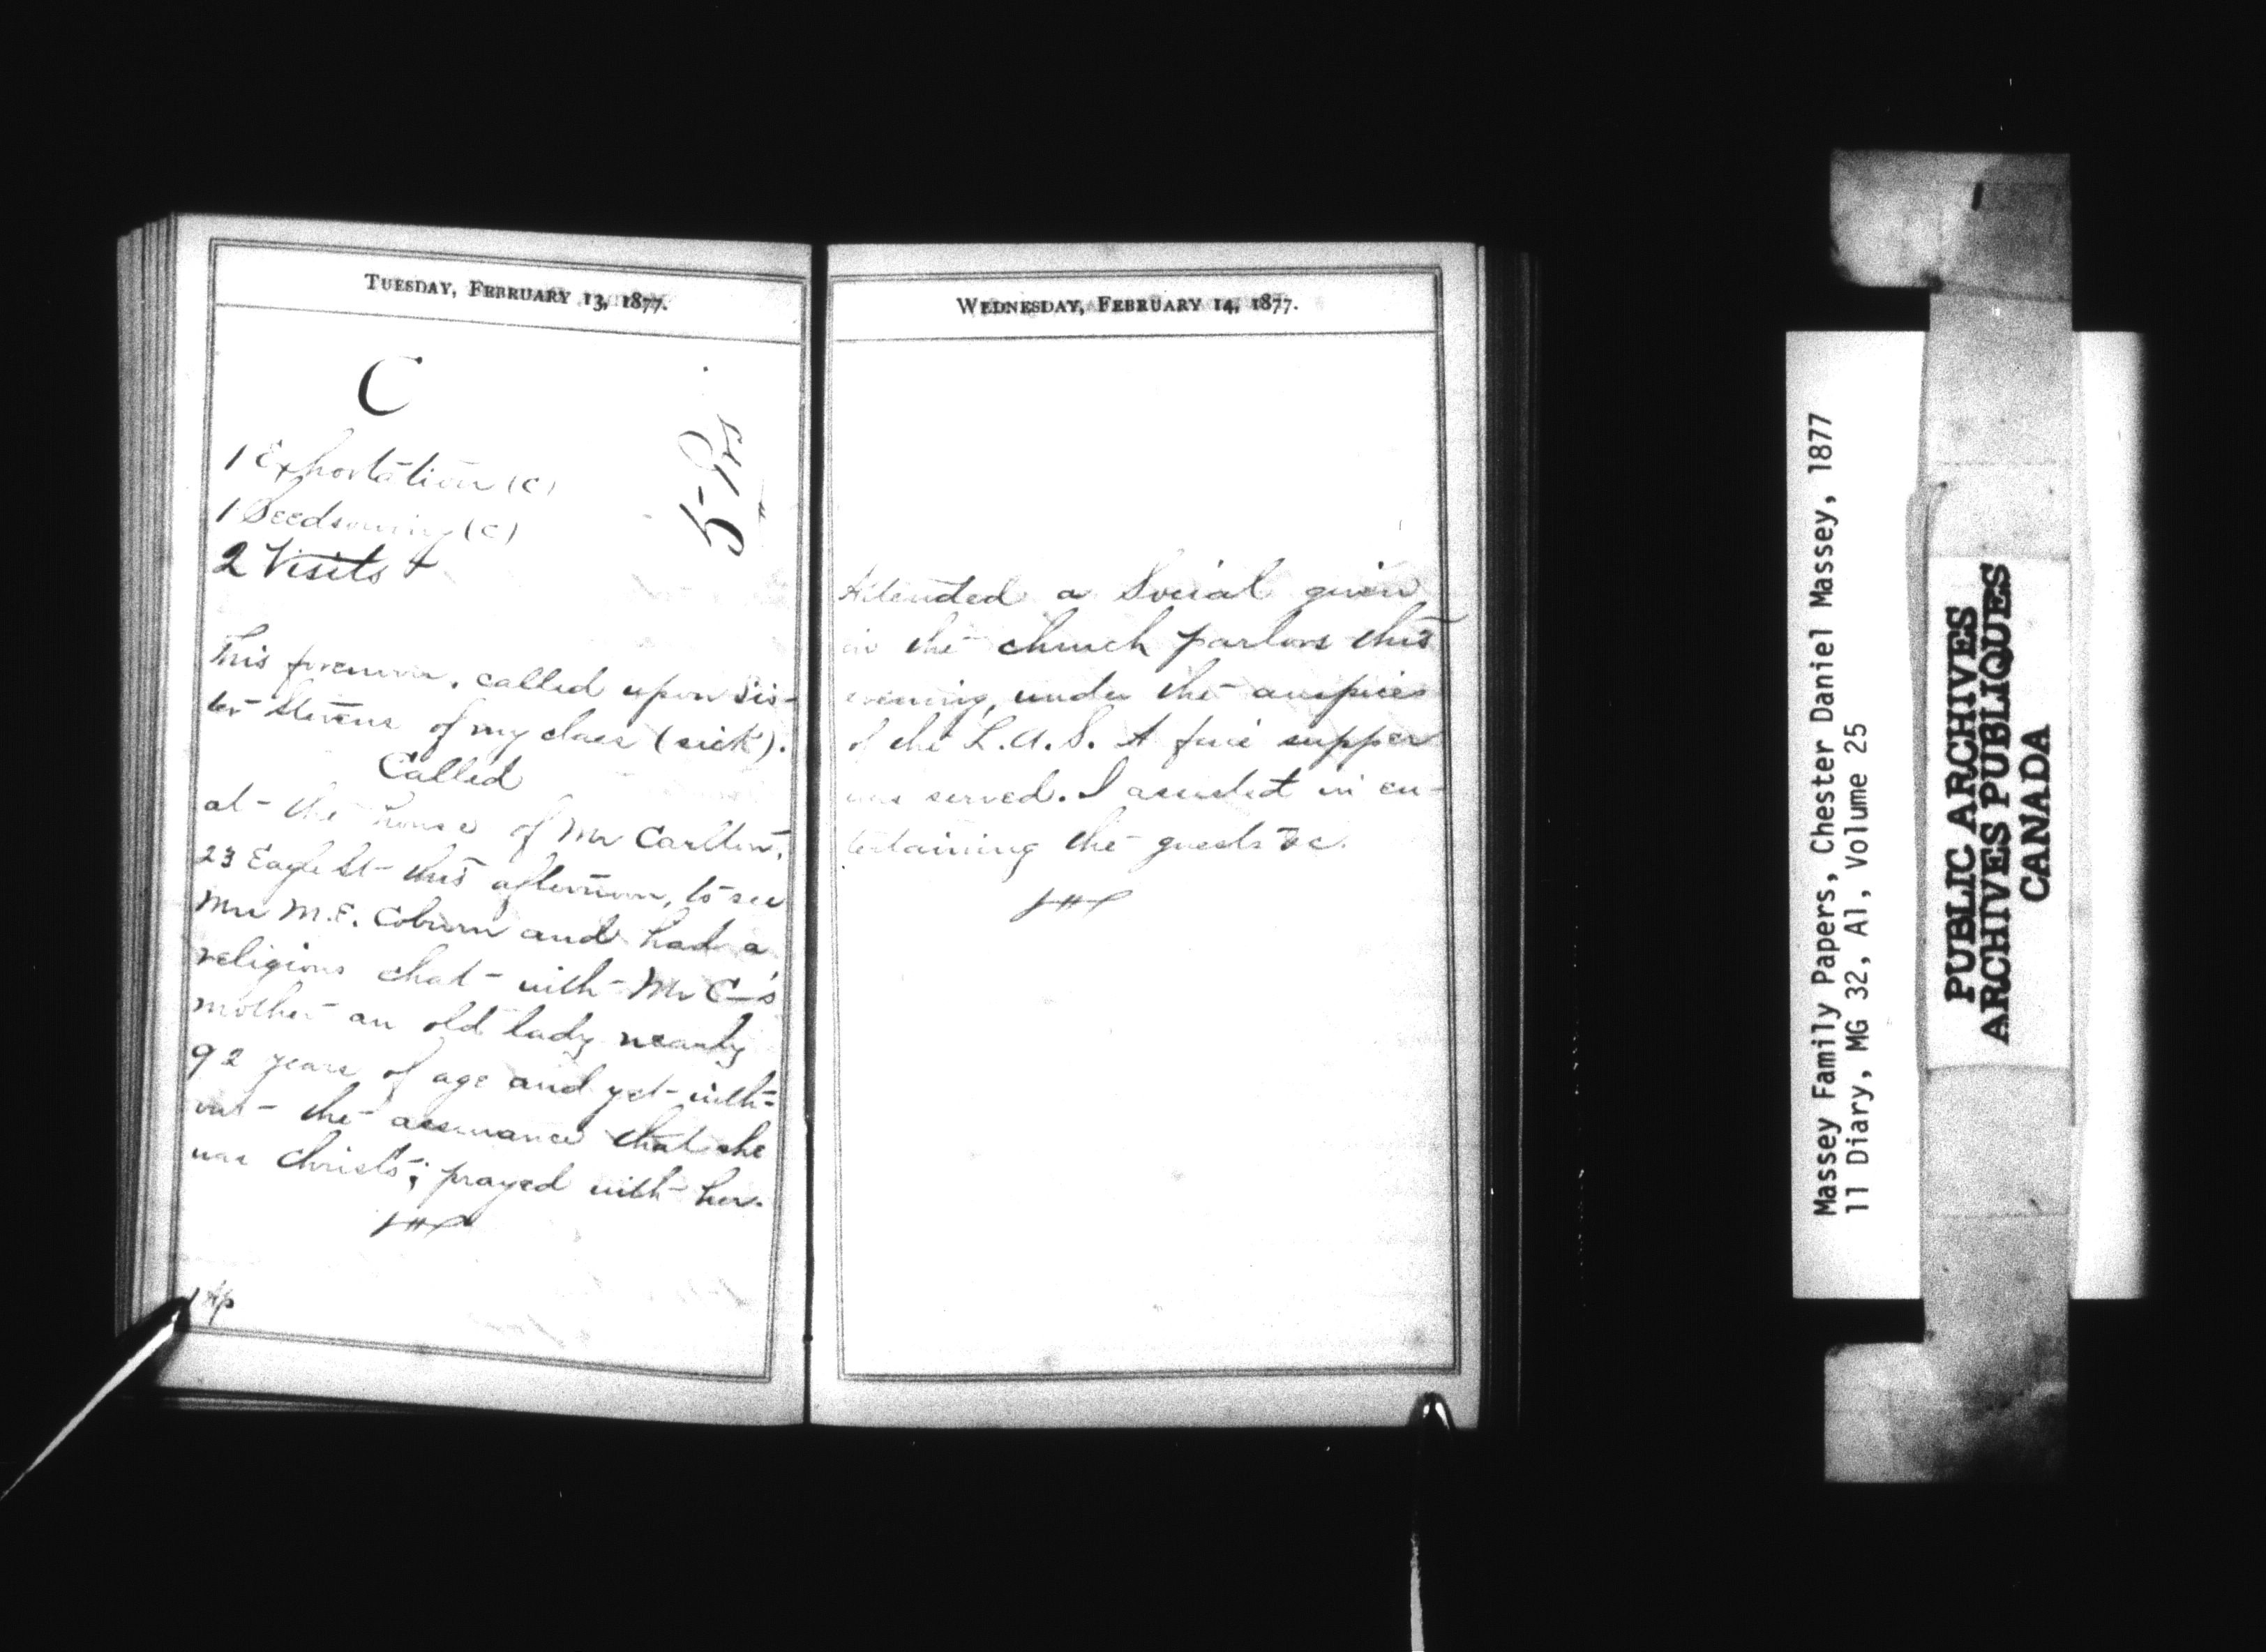 TUESDAY, FEBRUARY 13, 1877.
C
5 Prs
1 Exhortation (C)
1 Seedsowing (C)
2 Visits +
This forenoon, called upon Sis-
ter Stevens of my class (sick).
Called
at the house of Mr Carlton,
23 Eagle St this afternoon, to see
Mrs M.E. Coburn and had a
religious chat with Mr C—'s
mother an old lady nearly
92 years of age and yet with=
out the assurance that she
was Christ's; prayed with her.
WEDNESDAY, FEBRUARY 14, 1877.
Attended a Social given
in the church parlors this
evening, under the auspices
of the L.A.S. A fine supper
was served. I assisted in en-
tertaining the guests &c.
Massey Family Papers, Chester Daniel Massey, 1877
11 Diary, MG 32, A1, Volume 25
PUBLIC ARCHIVES
ARCHIVES PUBLIQUES
CANADA